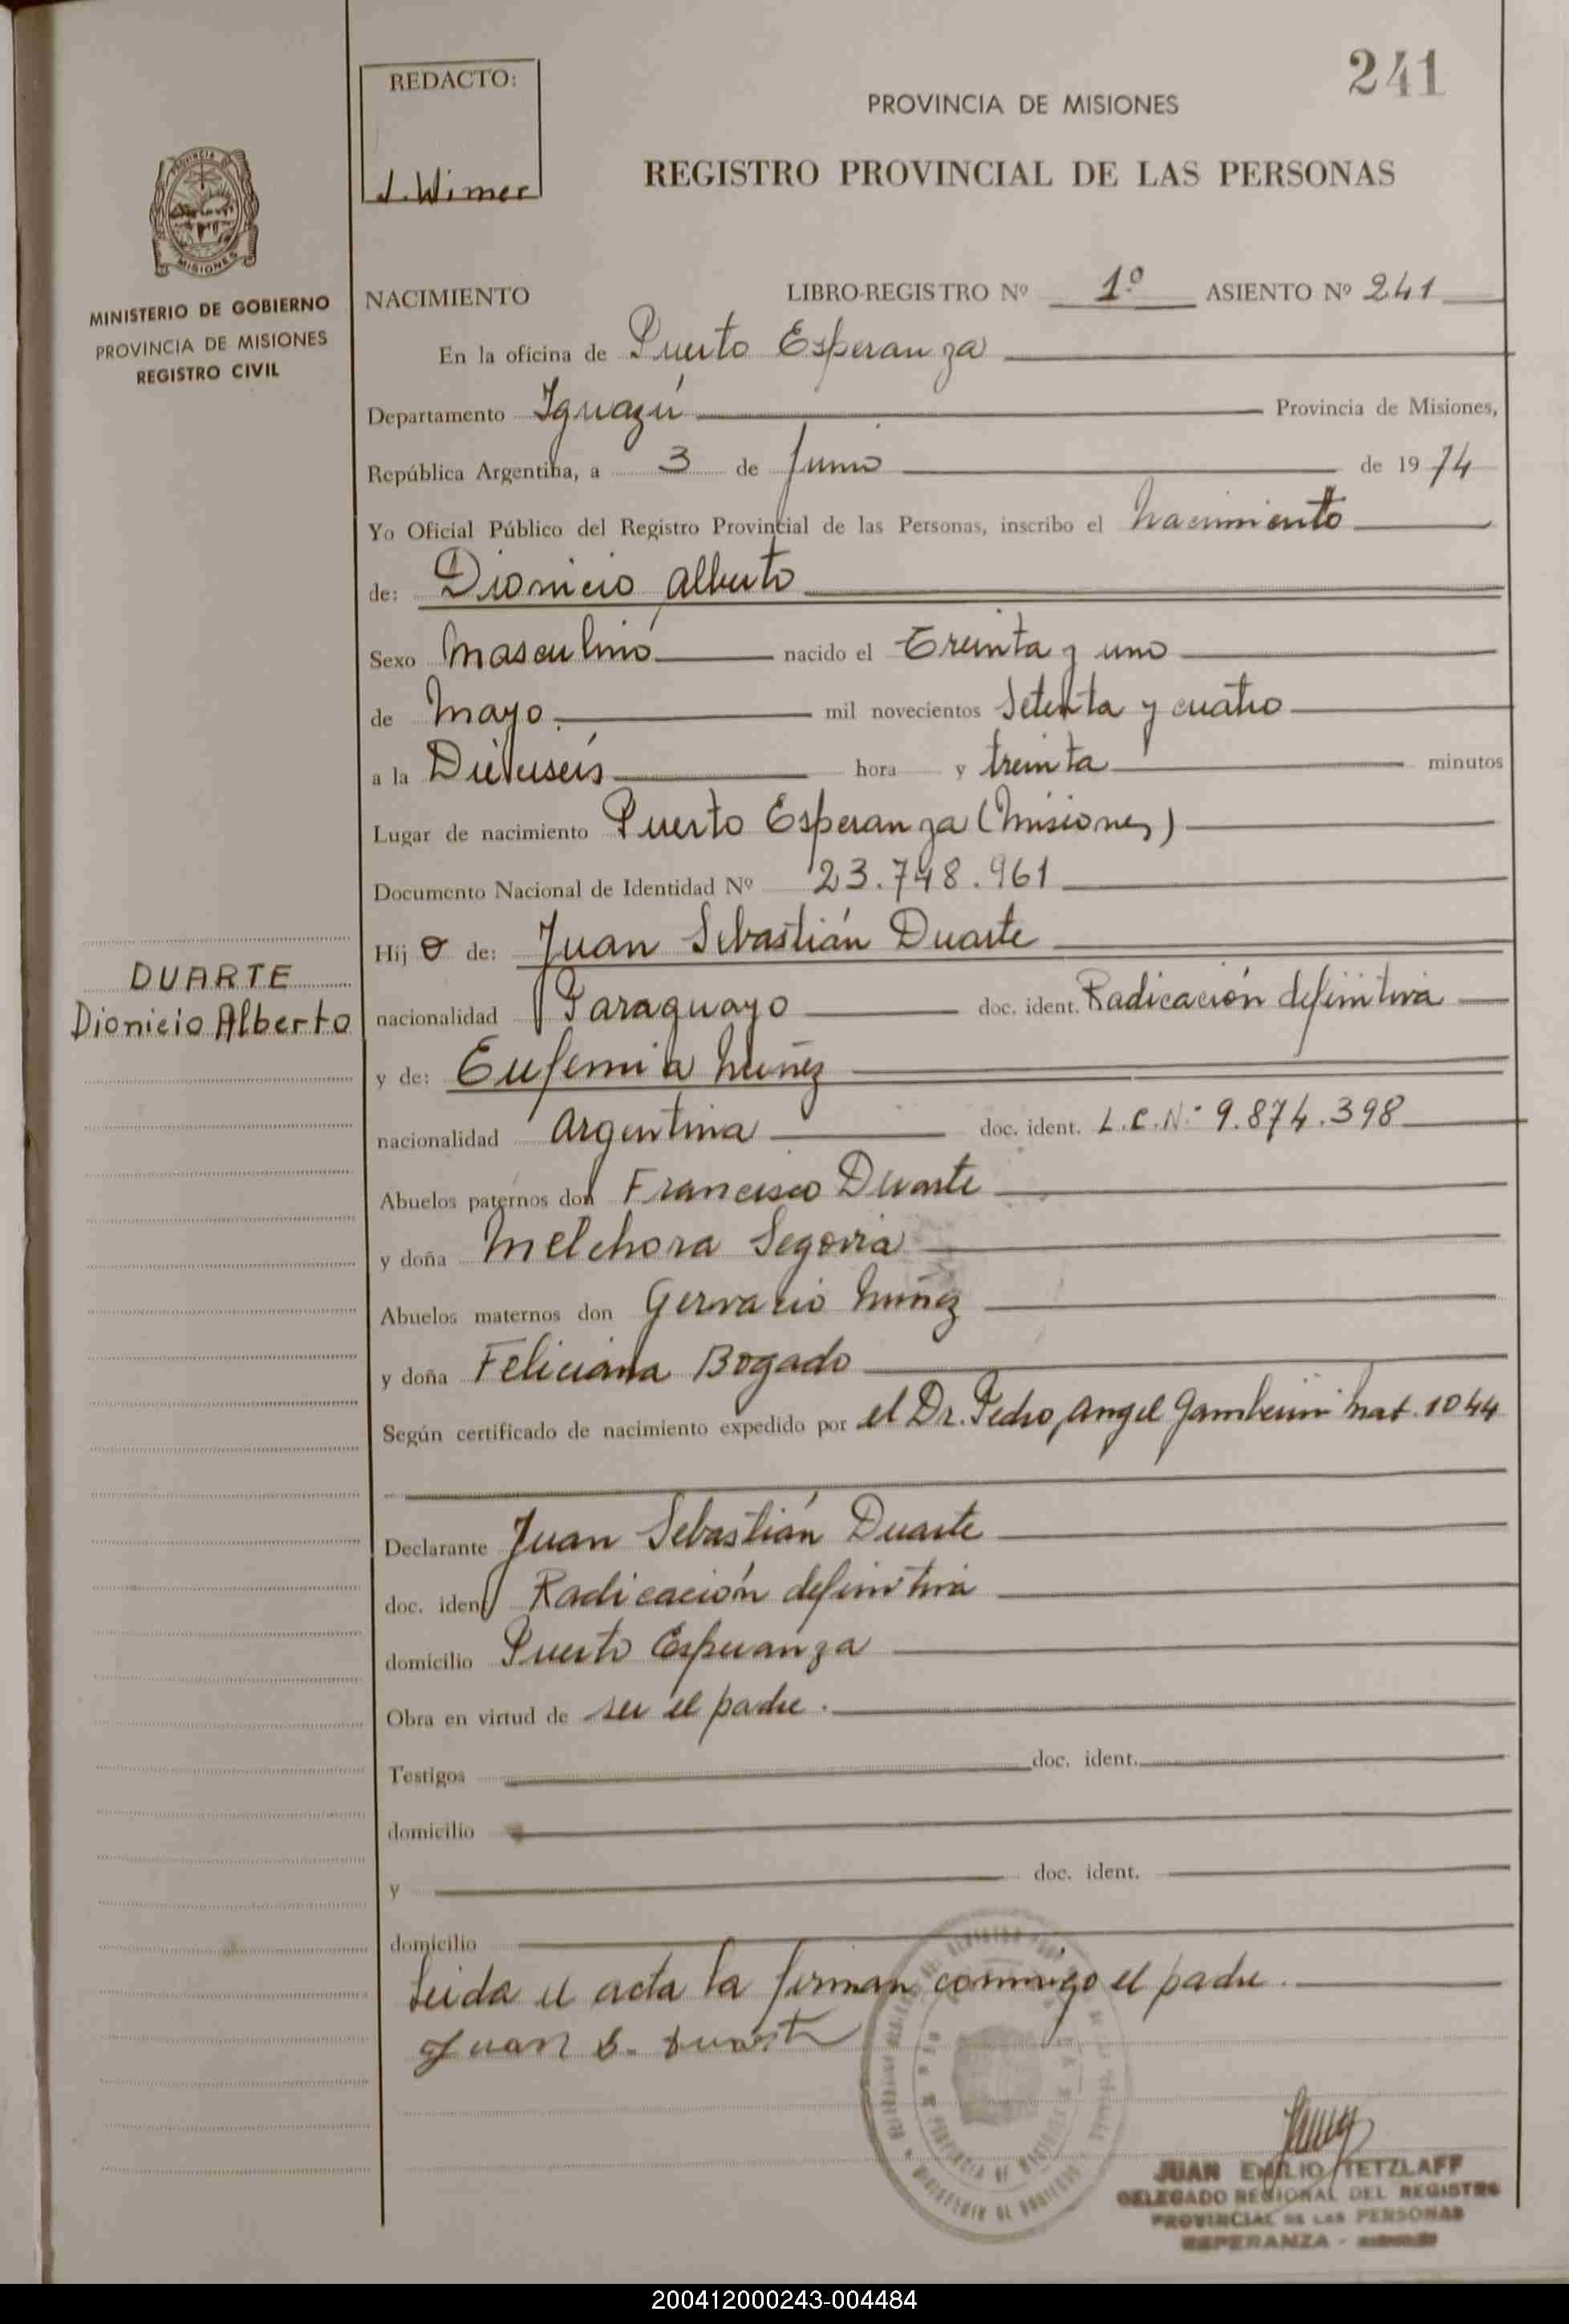 241
REDACTO:
J. Wimer
PROVINCIA DE MISIONES
REGISTRO PROVINCIAL DE LAS PERSONAS
PROVINCIA DE
MISIONES
MINISTERIO DE GOBIERNO
PROVINCIA DE MISIONES
REGISTRO CIVIL
NACIMIENTO LIBRO-REGISTRO Nº 1º ASIENTO Nº 241
En la oficina de Puerto Esperanza
Departamento Iguazú Provincia de Misiones,
República Argentina, a 3 de Junio de 1974
Yo Oficial Público del Registro Provincial de las Personas, inscribo el nacimiento
de: Dionicio Alberto
Sexo Masculino nacido el Treinta y uno
de Mayo. mil novecientos Setenta y cuatro
a la Dieciseis hora y treinta minutos
Lugar de nacimiento Puerto Esperanza (Misiones)
Documento Nacional de Identidad Nº 23.748.961
Hijo de: Juan Sebastián Duarte
DUARTE
Dionicio Alberto
nacionalidad Paraguayo doc. ident. Radicación definitiva
y de: Eufemia Núñez
nacionalidad Argentina doc. ident. L.C.Nº 9.874.398
Abuelos paternos don Francisco Duarte
y doña Melchora Segovia
Abuelos maternos don Gervacio Núñez
y doña Feliciana Bogado
Según certificado de nacimiento expedido por el Dr. Pedro Angel Gamberini Mat. 1044
Declarante Juan Sebastián Duarte
doc. ident Radicación definitiva
domicilio Puerto Esperanza
Obra en virtud de ser el padre.
Testigos doc. ident.
domicilio
y doc. ident.
domicilio
Leida el acta la firman conmigo el padre.
Juan S. Duarte
JUAN EMILIO TETZLAFF
DELEGADO REGIONAL DEL REGISTRO
PROVINCIAL DE LAS PERSONAS
ESPERANZA -
200412000243-004484